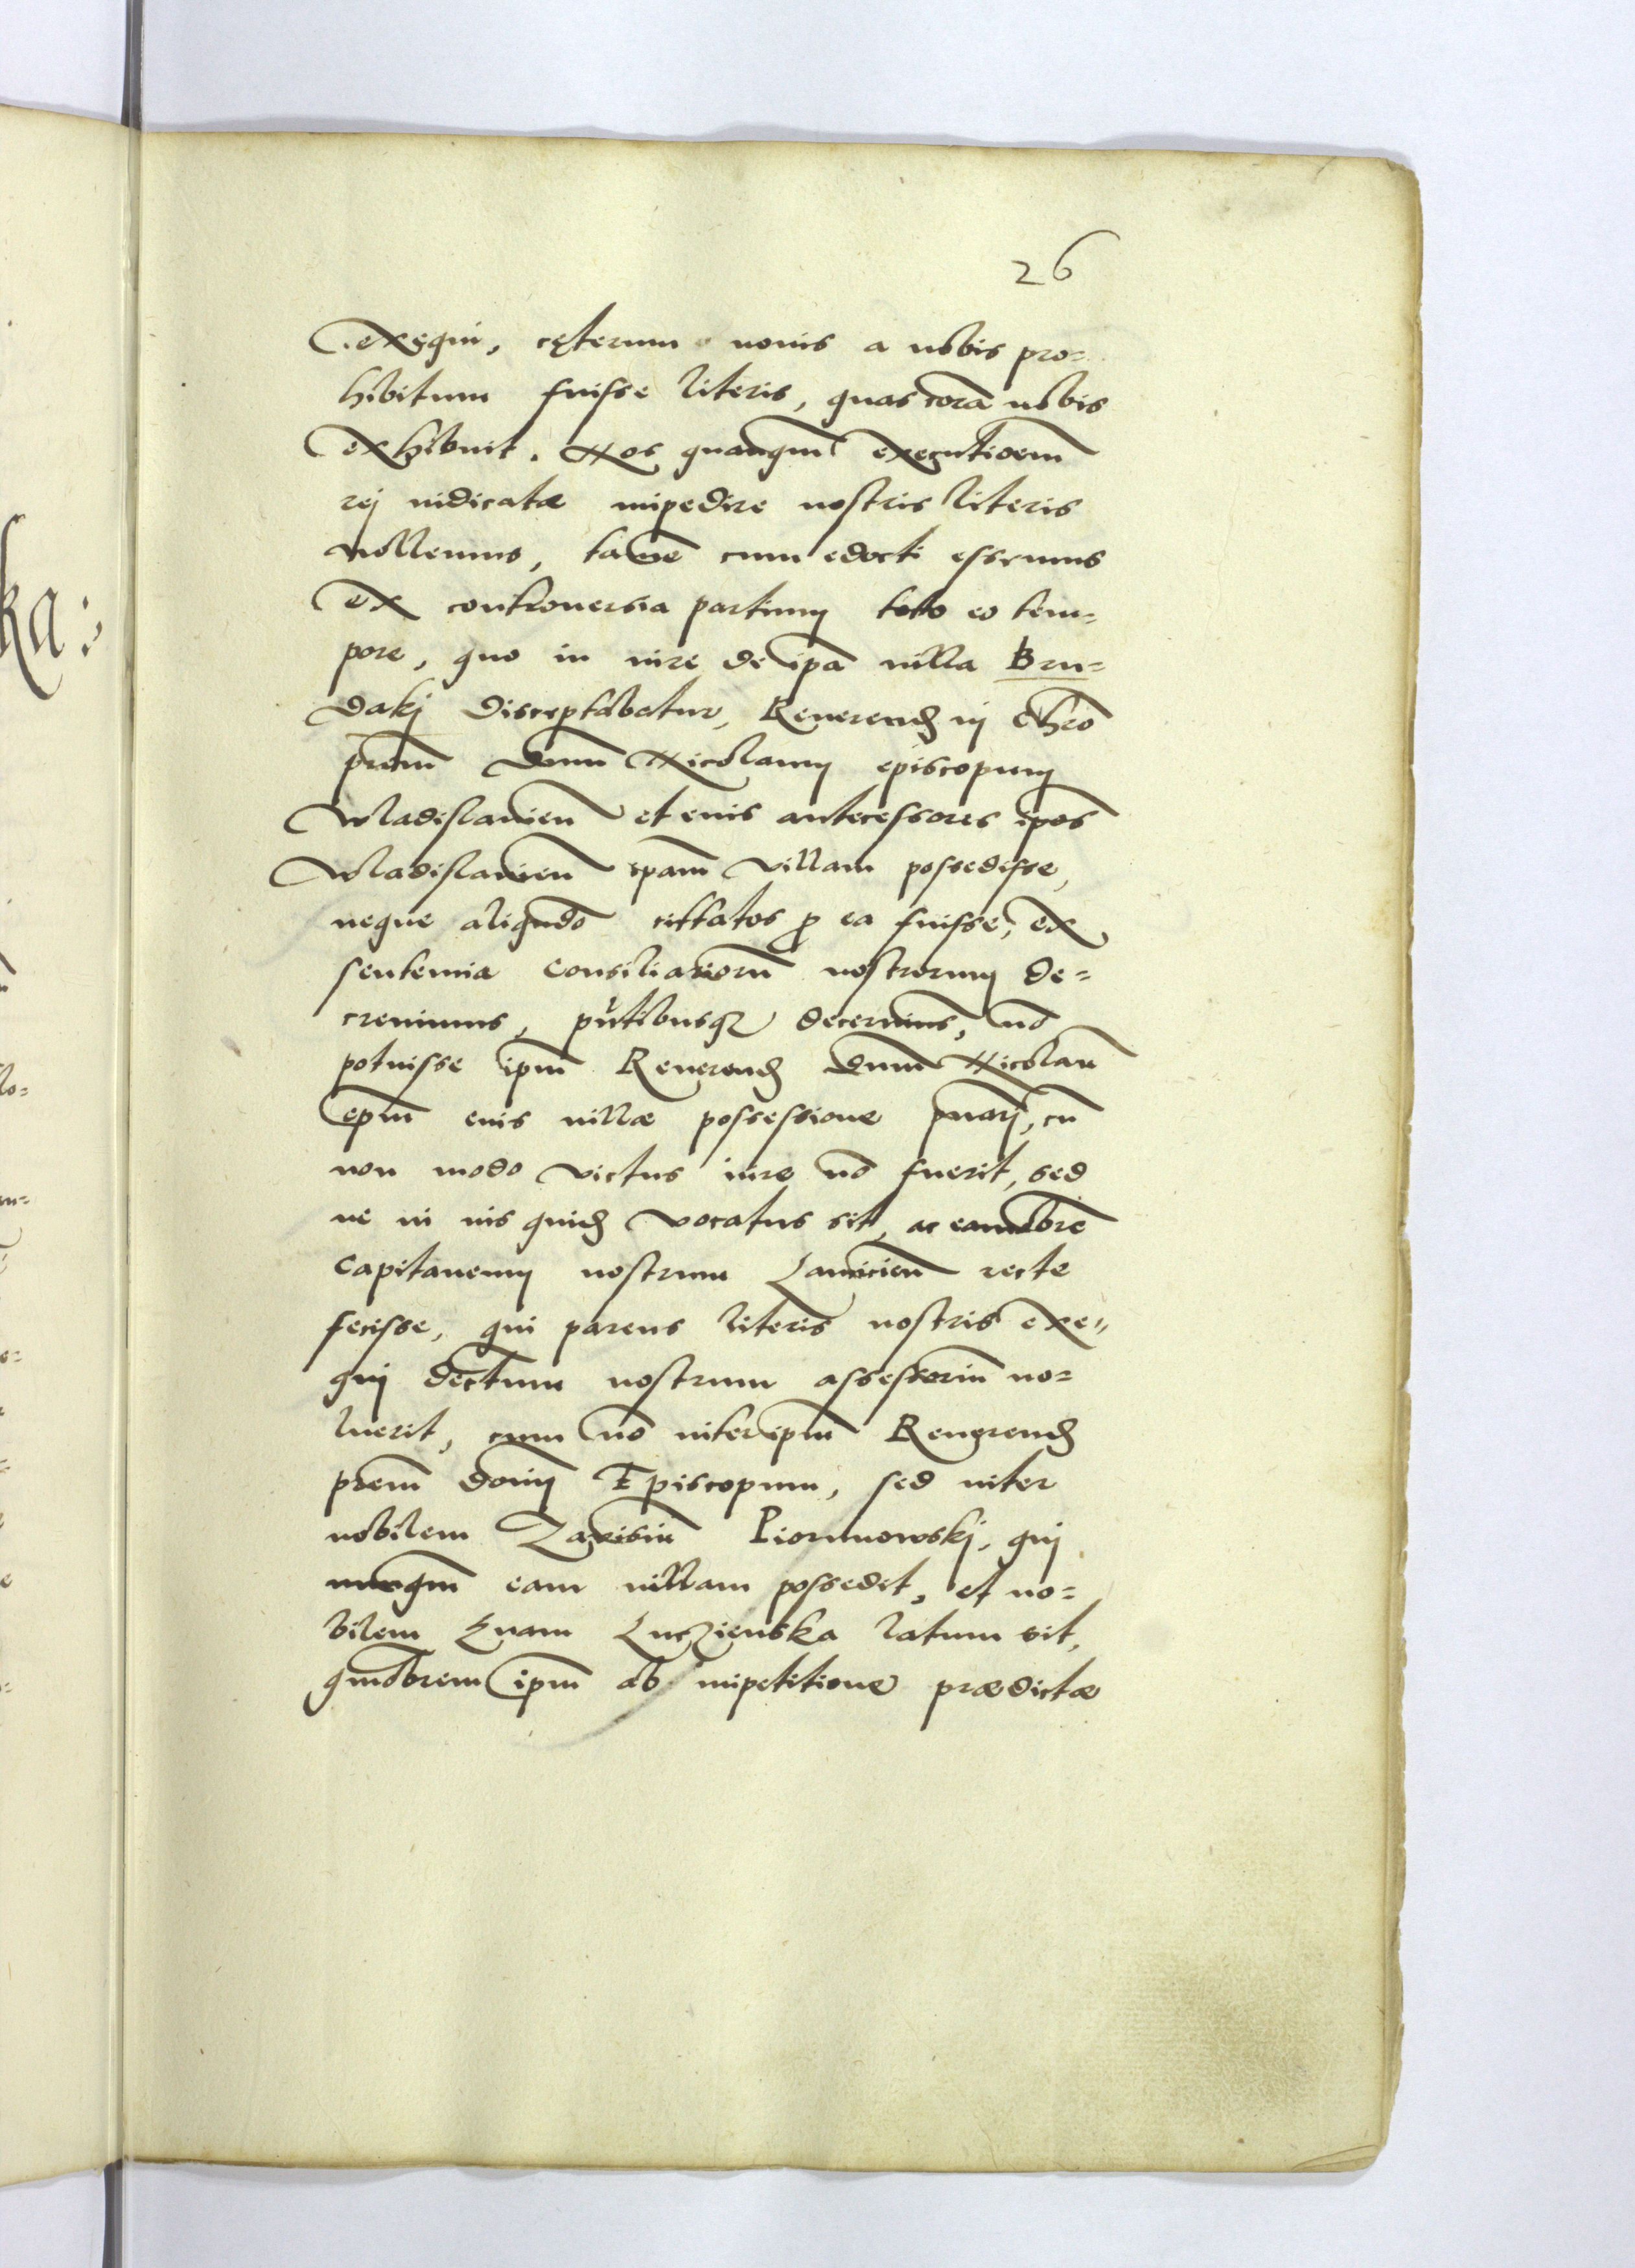 26
exequi, cęterum nouis a nobis pro=
hibitum fuisse literis, quas corã nobis
exhibuit. Nos quanqm̃ executioem̃
rej iudicatæ impedire nostris literis
nollemus, tamẽ cum edocti essemus
ex controuersia partium toto eo tem=
pore, quo in iure de ip̃a uilla Bru=
dakj disceptabatur, Reuerend in Chro
prem̃ dnm̃ Nicolaum episcopum
Wladislauien̄ et eius antecessores ip̃os
Wladislauien̄ ip̃am villam possedisse,
neque aliqũdo cittatos p ea fuisse, ex
sententia Consiliariorũ nostrorum de=
creuimus, pñtibusq decernims, nõ
potuisse ip̃m Reuerend dnm̃ Nicolaũ
ep̃m eius uillæ possessione priuarj, cũ
non modo victus iure nõ fuerit, sed
ne in ius quid vocatus sit, ac eamobrẽ
Capitaneum nostrum Lancicien̄ recte
fecisse, qui parens literis nostris exe=
qui dectum nostrum assessoriũ no=
luerit, cum nõ inter ip̃m Reuerend
prem̃ dnm̃ Episcopum, sed inter
nobilem Zawisiũ Piorunowskj, qui
nunqm̃ eam uillam possedit, et no=
bilem Euam Luczienska latum sit,
qmobrem ip̃m ab impetitione prædictæ
ka: